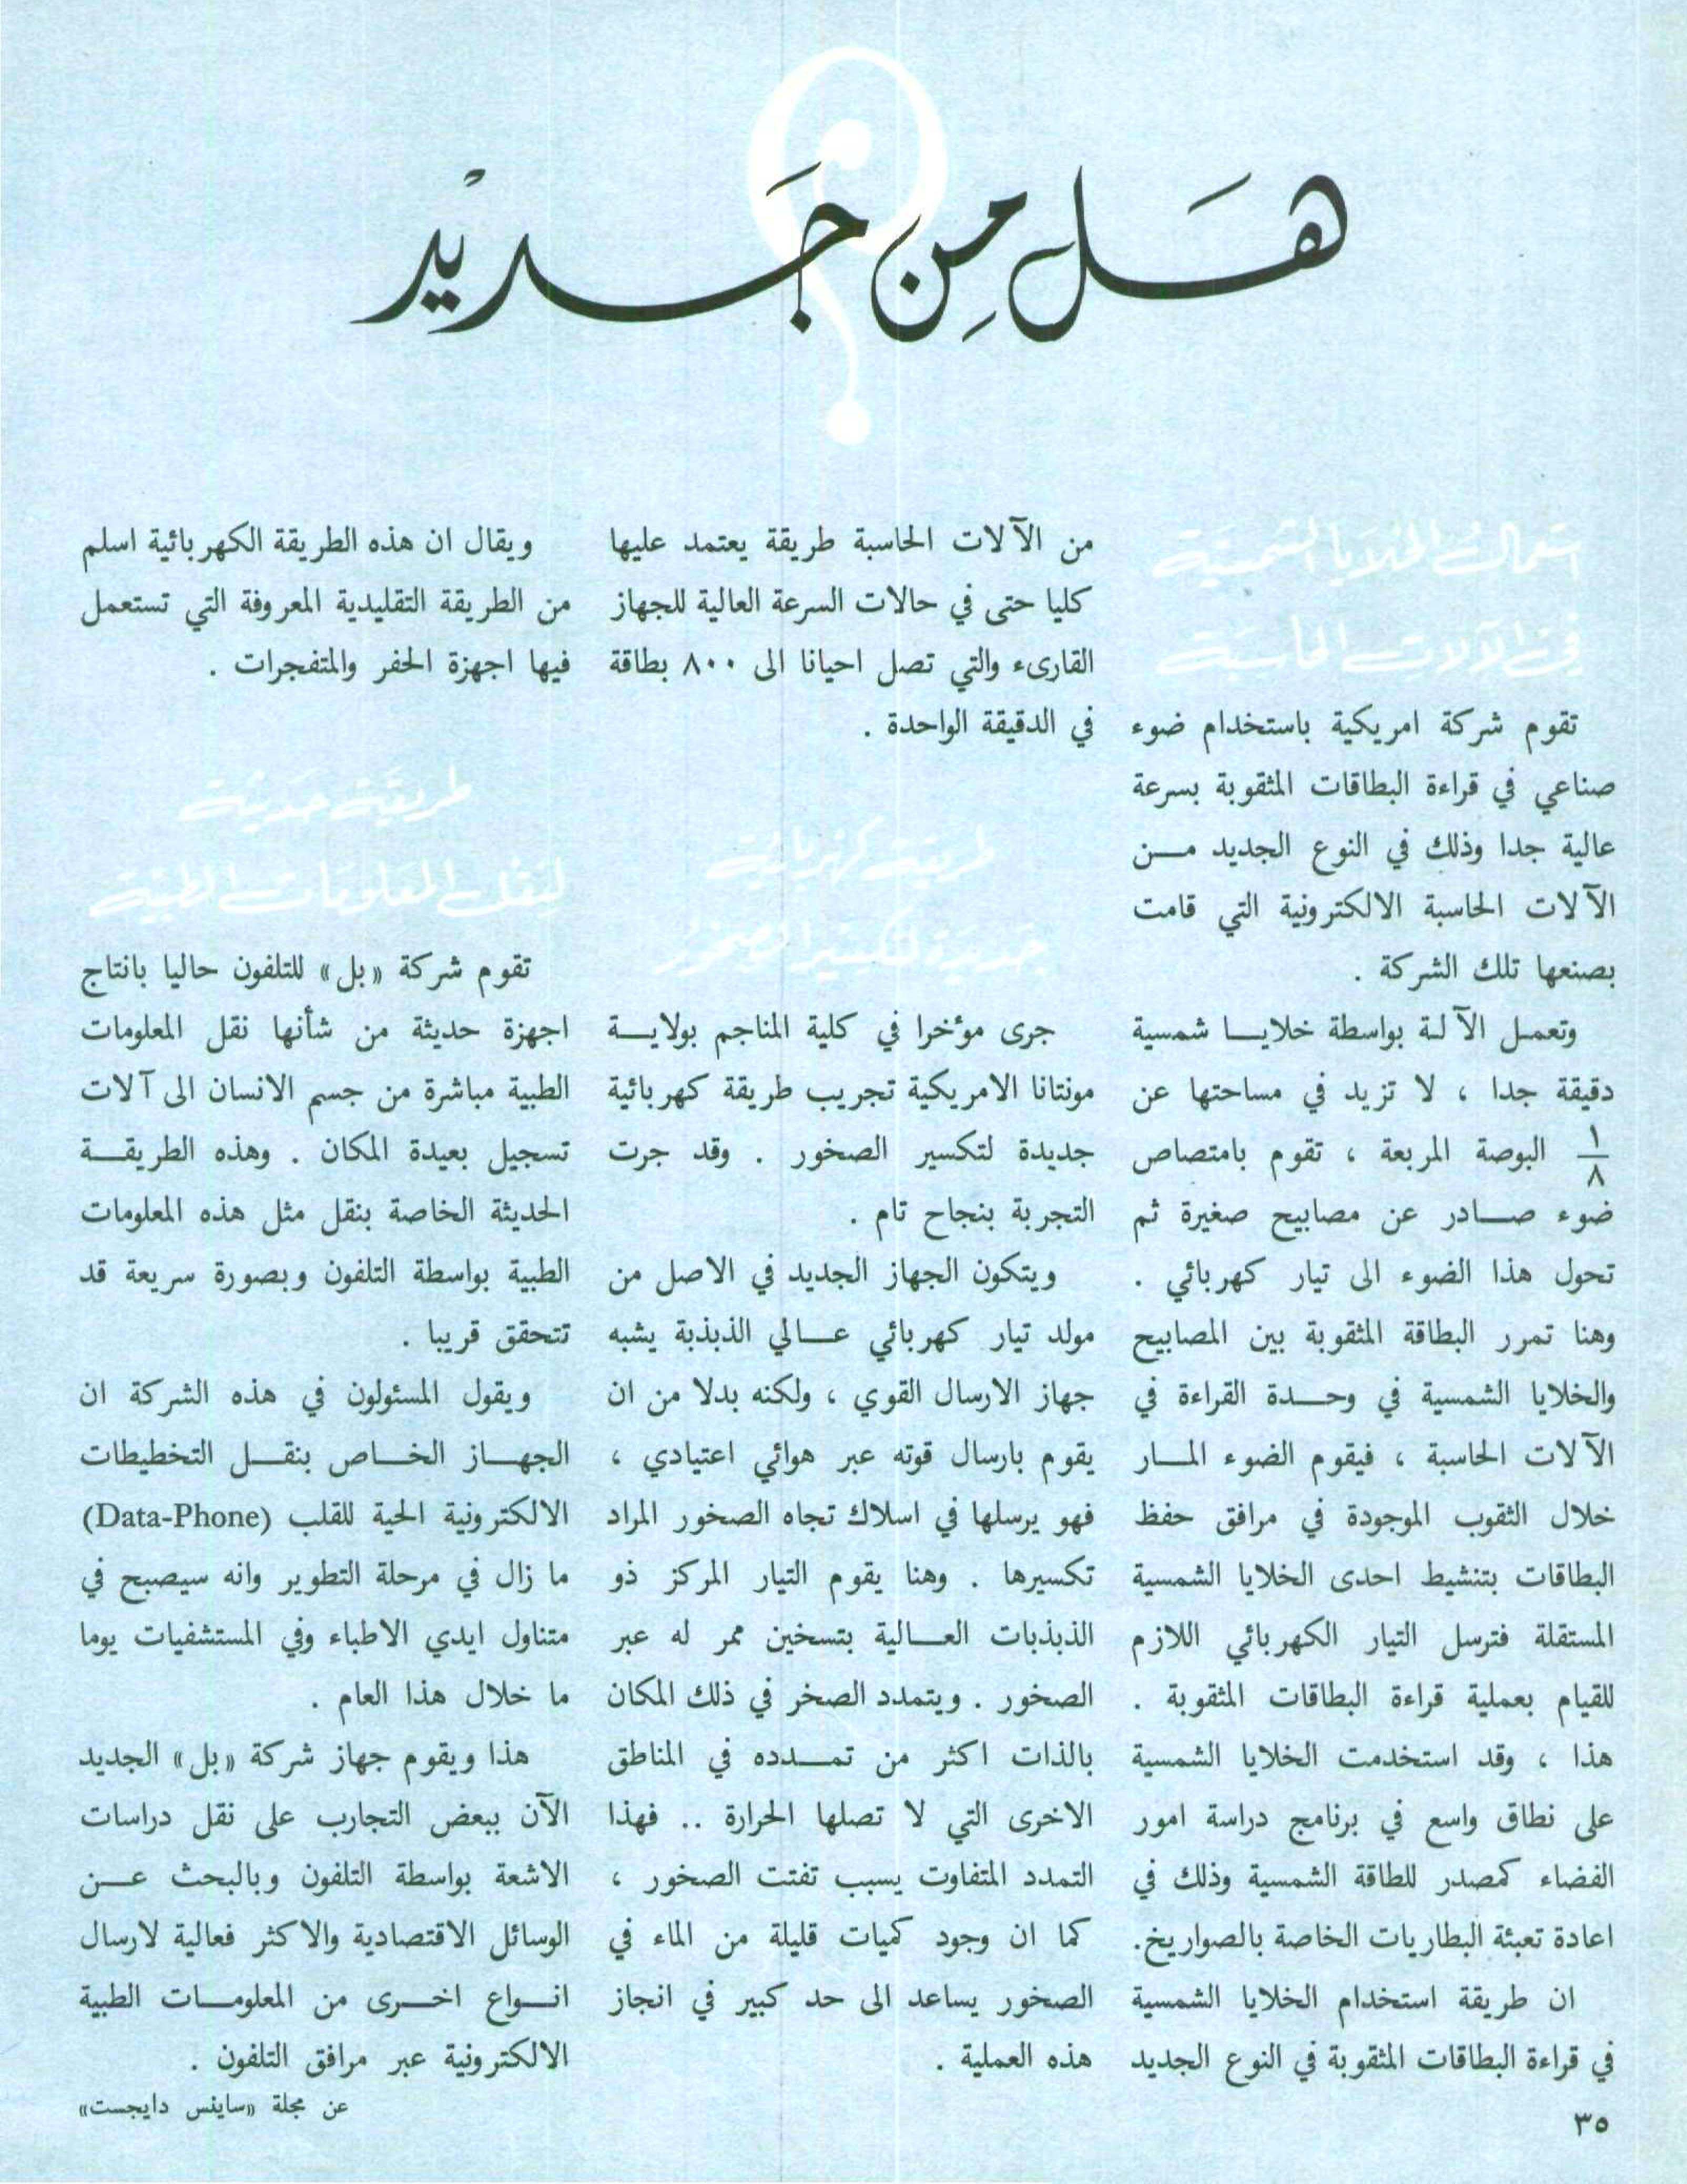 هَل مِن جَديدْ
؟
استعمال الخلايا الشمسية
في الآلات الحاسبة
تقوم شركة امريكية باستخدام ضوء
صناعي في قراءة البطاقات المثقوبة بسرعة
عالية جدا وذلك في النوع الجديد من
الآلات الحاسبة الالكترونية التي قامت
بصنعها تلك الشركة .
وتعمل الآلة بواسطة خلايا شمسية
دقيقة جدا ، لا تزيد في مساحتها عن
١/٨ البوصة المربعة ، تقوم بامتصاص
ضوء صادر عن مصابيح صغيرة ثم
تحول هذا الضوء الى تيار كهربائي .
وهنا تمرر البطاقة المثقوبة بين المصابيح
والخلايا الشمسية في وحدة القراءة في
الآلات الحاسبة ، فيقوم الضوء المار
خلال الثقوب الموجودة في مرافق حفظ
البطاقات بتنشيط احدى الخلايا الشمسية
المستقلة فترسل التيار الكهربائي اللازم
للقيام بعملية قراءة البطاقات المثقوبة .
هذا ، وقد استخدمت الخلايا الشمسية
على نطاق واسع في برنامج دراسة امور
الفضاء كمصدر للطاقة الشمسية وذلك في
اعادة تعبئة البطاريات الخاصة بالصواريخ.
ان طريقة استخدام الخلايا الشمسية
في قراءة البطاقات المثقوبة في النوع الجديد
من الآلات الحاسبة طريقة يعتمد عليها
كليا حتى في حالات السرعة العالية للجهاز
القارىء والتي تصل احيانا الى ٨٠٠ بطاقة
في الدقيقة الواحدة .
طريقة كهربائية
جديدة لتكسير الصخور
جرى مؤخرا في كلية المناجم بولاية
مونتانا الامريكية تجريب طريقة كهربائية
جديدة لتكسير الصخور . وقد جرت
التجربة بنجاح تام .
ويتكون الجهاز الجديد في الاصل من
مولد تيار كهربائي عالي الذبذبة يشبه
جهاز الارسال القوي ، ولكنه بدلا من ان
يقوم بارسال قوته عبر هوائي اعتيادي ،
فهو يرسلها في اسلاك تجاه الصخور المراد
تكسيرها . وهنا يقوم التيار المركز ذو
الذبذبات العالية بتسخين ممر له عبر
الصخور . ويتمدد الصخر في ذلك المكان
بالذات اكثر من تمدده في المناطق
الاخرى التي لا تصلها الحرارة .. فهذا
التمدد المتفاوت يسبب تفتت الصخور ،
كما ان وجود كميات قليلة من الماء في
الصخور يساعد الى حد كبير في انجاز
هذه العملية .
ويقال ان هذه الطريقة الكهربائية اسلم
من الطريقة التقليدية المعروفة التي تستعمل
فيها اجهزة الحفر والمتفجرات .
طريقة حديثة
لنقل المعلومات الطبية
تقوم شركة «بل» للتلفون حاليا بانتاج
اجهزة حديثة من شأنها نقل المعلومات
الطبية مباشرة من جسم الانسان الى آلات
تسجيل بعيدة المكان . وهذه الطريقة
الحديثة الخاصة بنقل مثل هذه المعلومات
الطبية بواسطة التلفون وبصورة سريعة قد
تتحقق قريبا .
ويقول المسئولون في هذه الشركة ان
الجهاز الخاص بنقل التخطيطات
الالكترونية الحية للقلب (Data-Phone)
ما زال في مرحلة التطوير وانه سيصبح في
متناول ايدي الاطباء وفي المستشفيات يوما
ما خلال هذا العام .
هذا ويقوم جهاز شركة «بل» الجديد
الآن ببعض التجارب على نقل دراسات
الاشعة بواسطة التلفون وبالبحث عن
الوسائل الاقتصادية والاكثر فعالية لارسال
انواع اخرى من المعلومات الطبية
الالكترونية عبر مرافق التلفون .
عن مجلة «ساينس دايجست»
٣٥